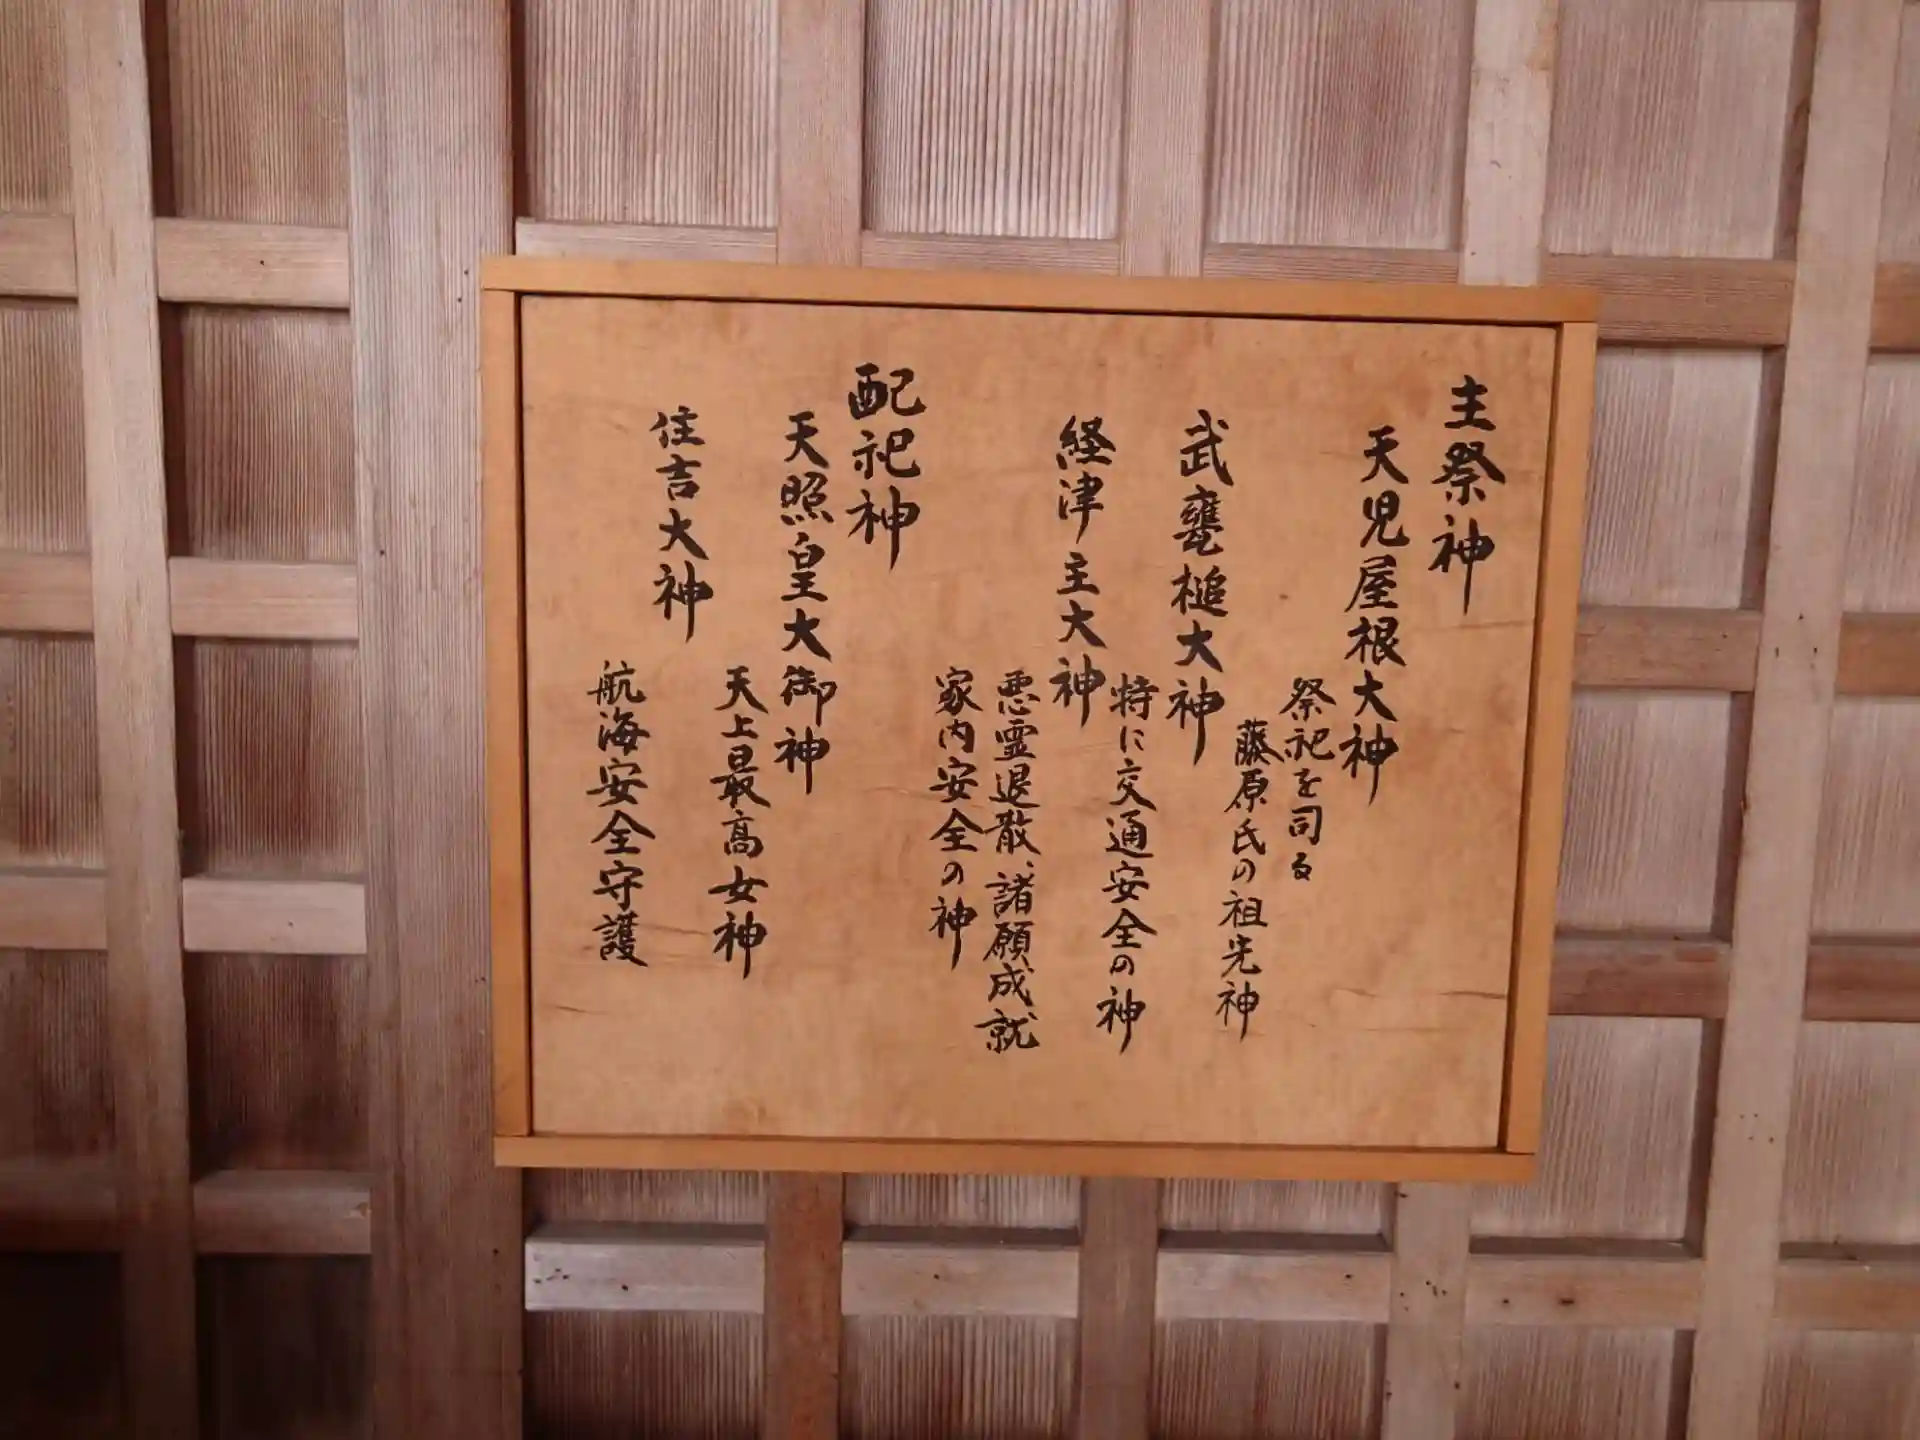 主祭神
天児屋根大神
祭祀を司る
藤原氏の祖先神
武甕槌大神
特に交通安全の神
経津主大神
悪霊退散、諸願成就
家内安全の神
配祀神
天照皇大御神
天上最高女神
住吉大神
航海安全守護